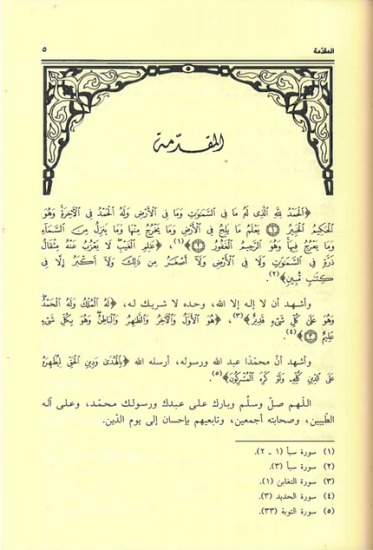 المقدّمة
٥
المقدّمة
﴿الْحَمْدُ لِلَّهِ الَّذِى لَهُ مَا فِى السَّمَٰوَٰتِ وَمَا فِى الْأَرْضِ وَلَهُ الْحَمْدُ فِى الْآخِرَةِ وَهُوَ
الْحَكِيمُ الْخَبِيرُ ١ يَعْلَمُ مَا يَلِجُ فِى الْأَرْضِ وَمَا يَخْرُجُ مِنْهَا وَمَا يَنزِلُ مِنَ السَّمَآءِ
وَمَا يَعْرُجُ فِيهَا وَهُوَ الرَّحِيمُ الْغَفُورُ ٢﴾(١)، ﴿عَٰلِمِ الْغَيْبِ لَا يَعْزُبُ عَنْهُ مِثْقَالُ
ذَرَّةٍ فِى السَّمَٰوَٰتِ وَلَا فِى الْأَرْضِ وَلَآ أَصْغَرُ مِن ذَٰلِكَ وَلَآ أَكْبَرُ إِلَّا فِى
كِتَٰبٍ مُّبِينٍ﴾(٢).
وأشهد أن لا إله إلا الله، وحده لا شريك له، ﴿لَهُ الْمُلْكُ وَلَهُ الْحَمْدُ
وَهُوَ عَلَىٰ كُلِّ شَىْءٍ قَدِيرٌ﴾(٣)، ﴿هُوَ الْأَوَّلُ وَالْآخِرُ وَالظَّٰهِرُ وَالْبَاطِنُ وَهُوَ بِكُلِّ شَىْءٍ
عَلِيمٌ ٣﴾(٤).
وأشهد أنّ محمّدًا عبد الله ورسوله، أرسله الله ﴿بِالْهُدَىٰ وَدِينِ الْحَقِّ لِيُظْهِرَهُ
عَلَى الدِّينِ كُلِّهِ وَلَوْ كَرِهَ الْمُشْرِكُونَ﴾(٥).
اللّهم صلّ وسلّم وبارك على عبدك ورسولك محمّد، وعلى آله
الطّيبين، وصحابته أجمعين، وتابعيهم بإحسان إلى يوم الدّين.
(١) سورة سبأ (١ ـ ٢).
(٢) سورة سبأ (٣).
(٣) سورة التغابن (١).
(٤) سورة الحديد (٣).
(٥) سورة التوبة (٣٣).